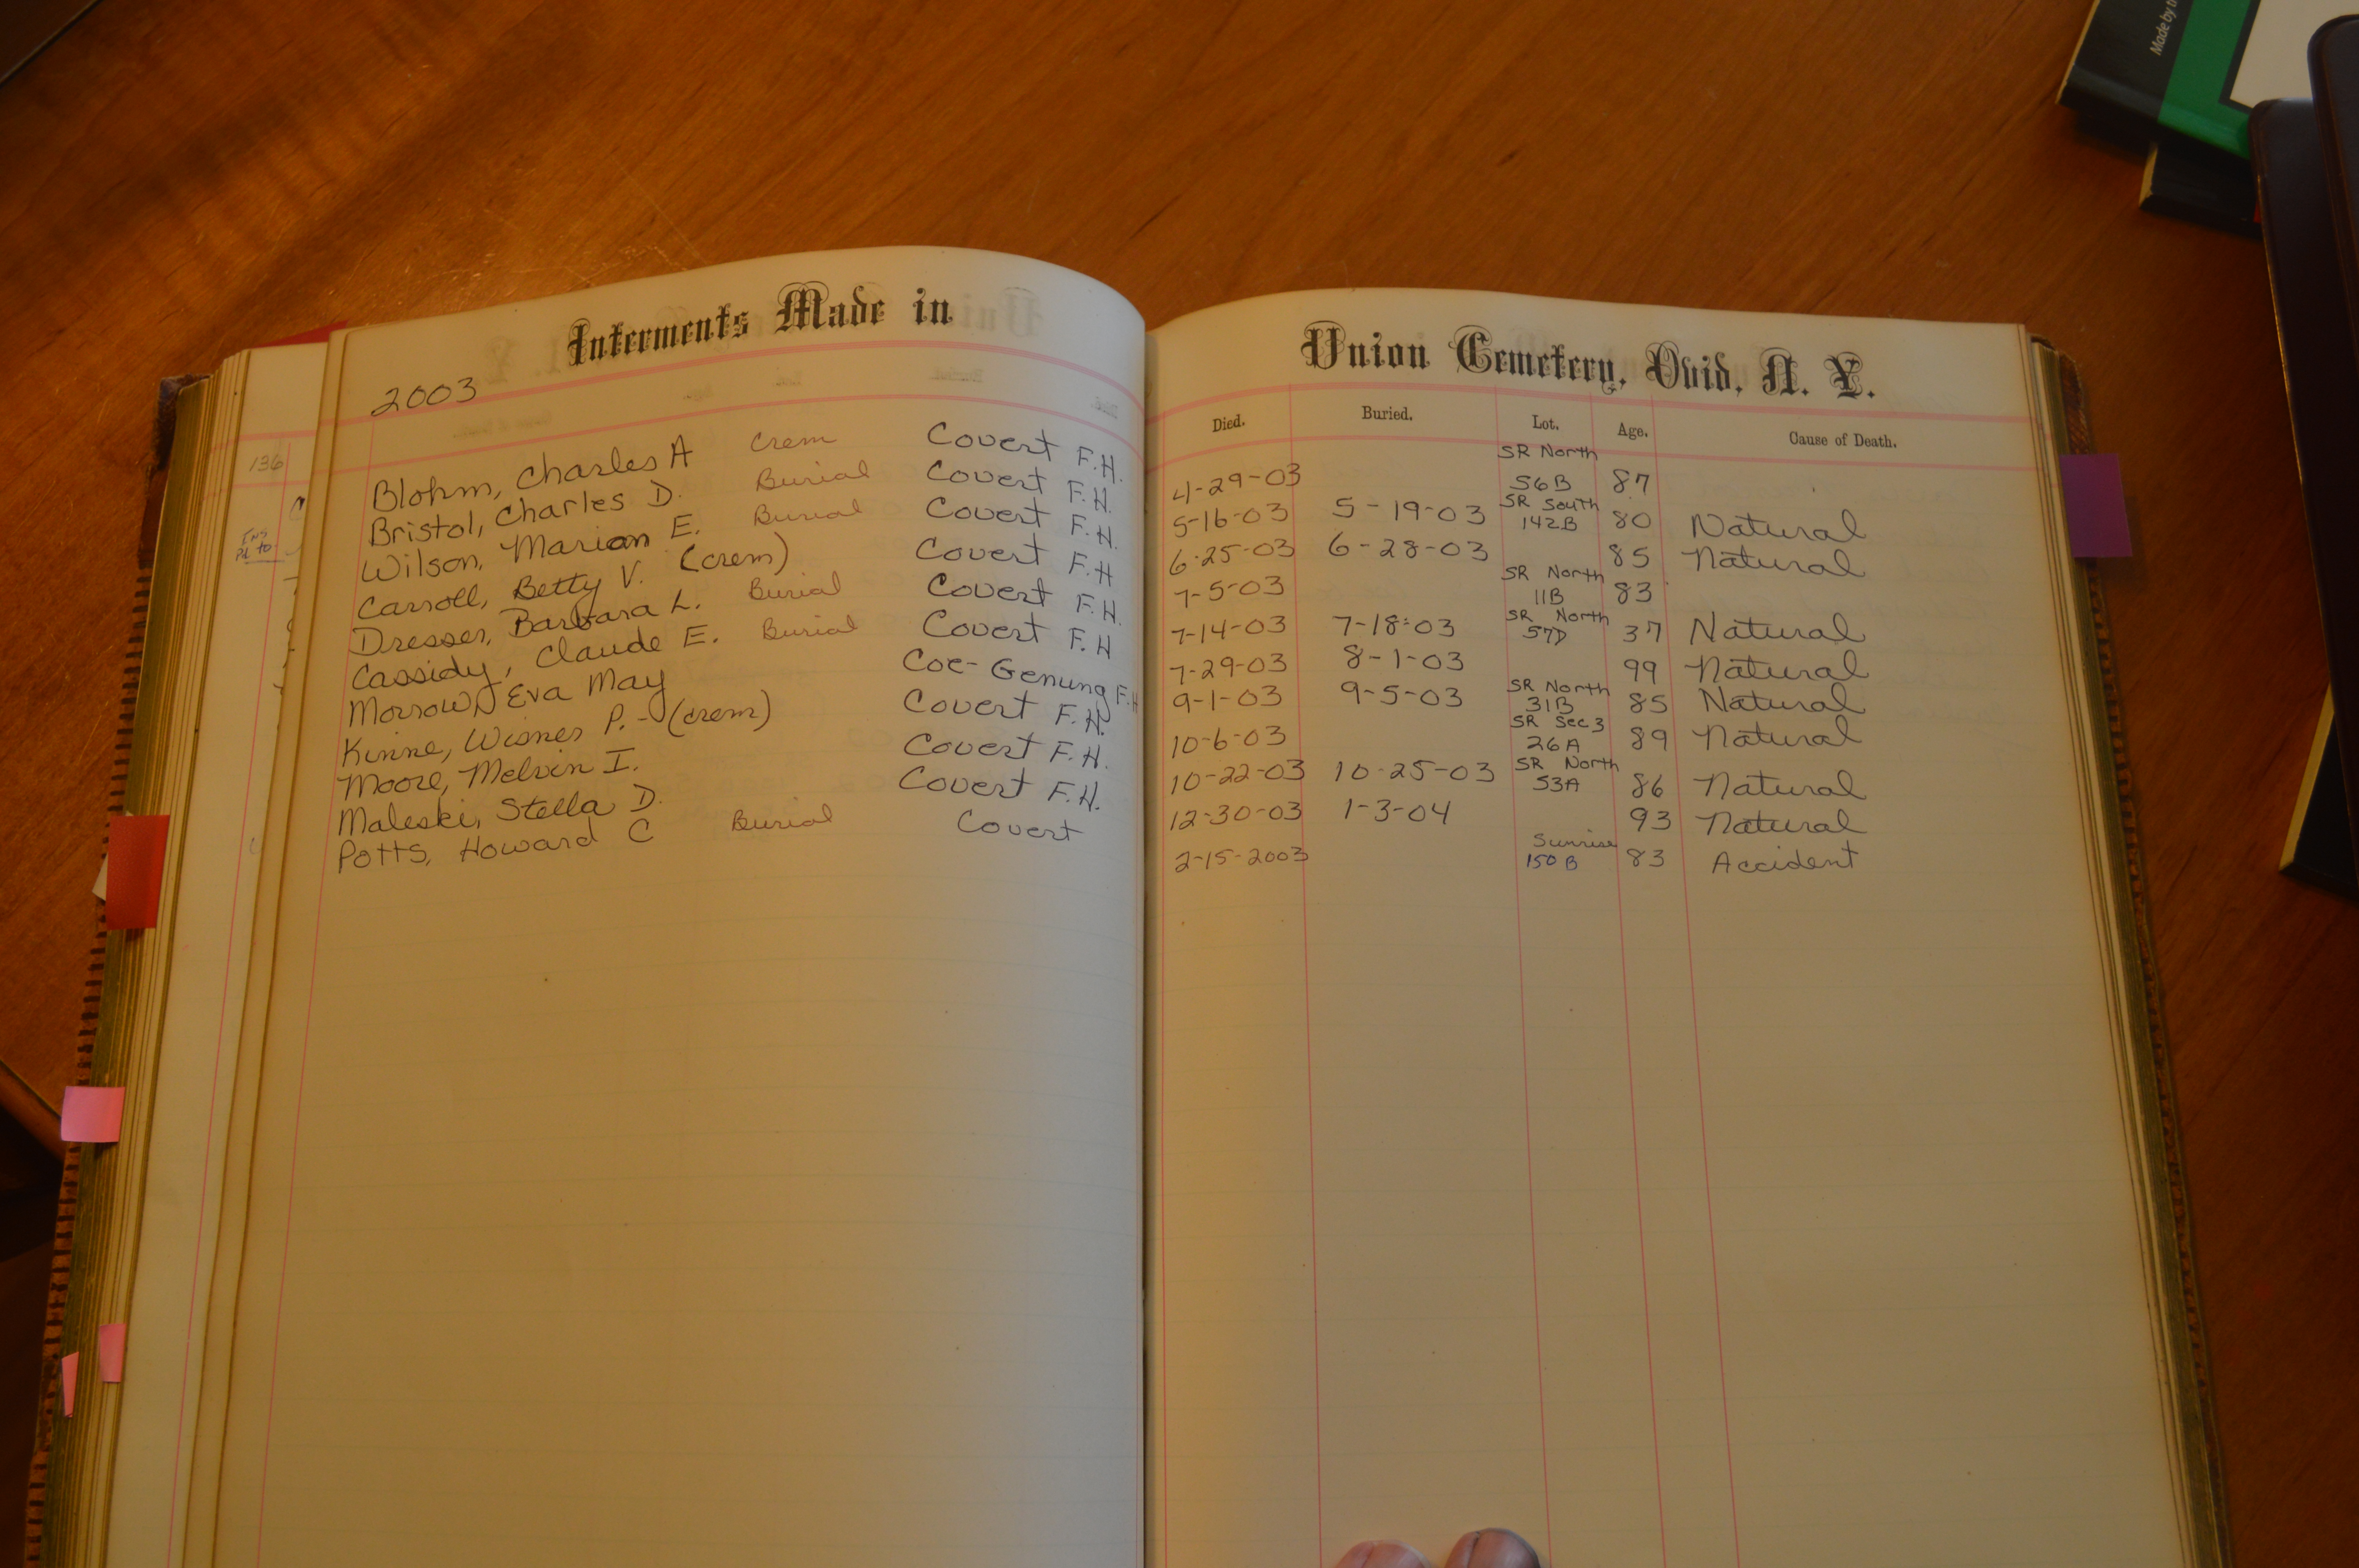 Made by t
Interments Made in
Union Cemetery, Ovid, N. Y.
2003
Died. Buried. Lot. Age. Cause of Death.
136
Ins
Pd to
SR North
Blohm, Charles A Crem Covert F.H. 4-29-03 56B 87
SR South
Bristol, Charles D. Burial Covert F.H. 5-16-03 5-19-03 142B 80 Natural
Wilson, Marian E. Burial Covert F.H. 6-25-03 6-28-03 85 Natural
SR North
Carroll, Betty V. (crem) Covert F.H 7-5-03 11B 83
SR North
Dresser, Barbara L. Burial Covert F.H. 7-14-03 7-18-03 57D 37 Natural
Cassidy, Claude E. Burial Covert F.H 7-29-03 8-1-03 99 Natural
SR North
Morrow, Eva May Coe-Genung F.H 9-1-03 9-5-03 31B 85 Natural
SR Sec 3
Kinne, Wisner P. - (crem) Covert F.H. 10-6-03 26A 89 Natural
SR North
Moore, Melvin I. Covert F.H. 10-22-03 10-25-03 53A 86 Natural
Maleski, Stella D. Covert F.H. 12-30-03 1-3-04 93 Natural
Sunrise
Potts, Howard C Burial Covert 2-15-2003 150 B 83 Accident